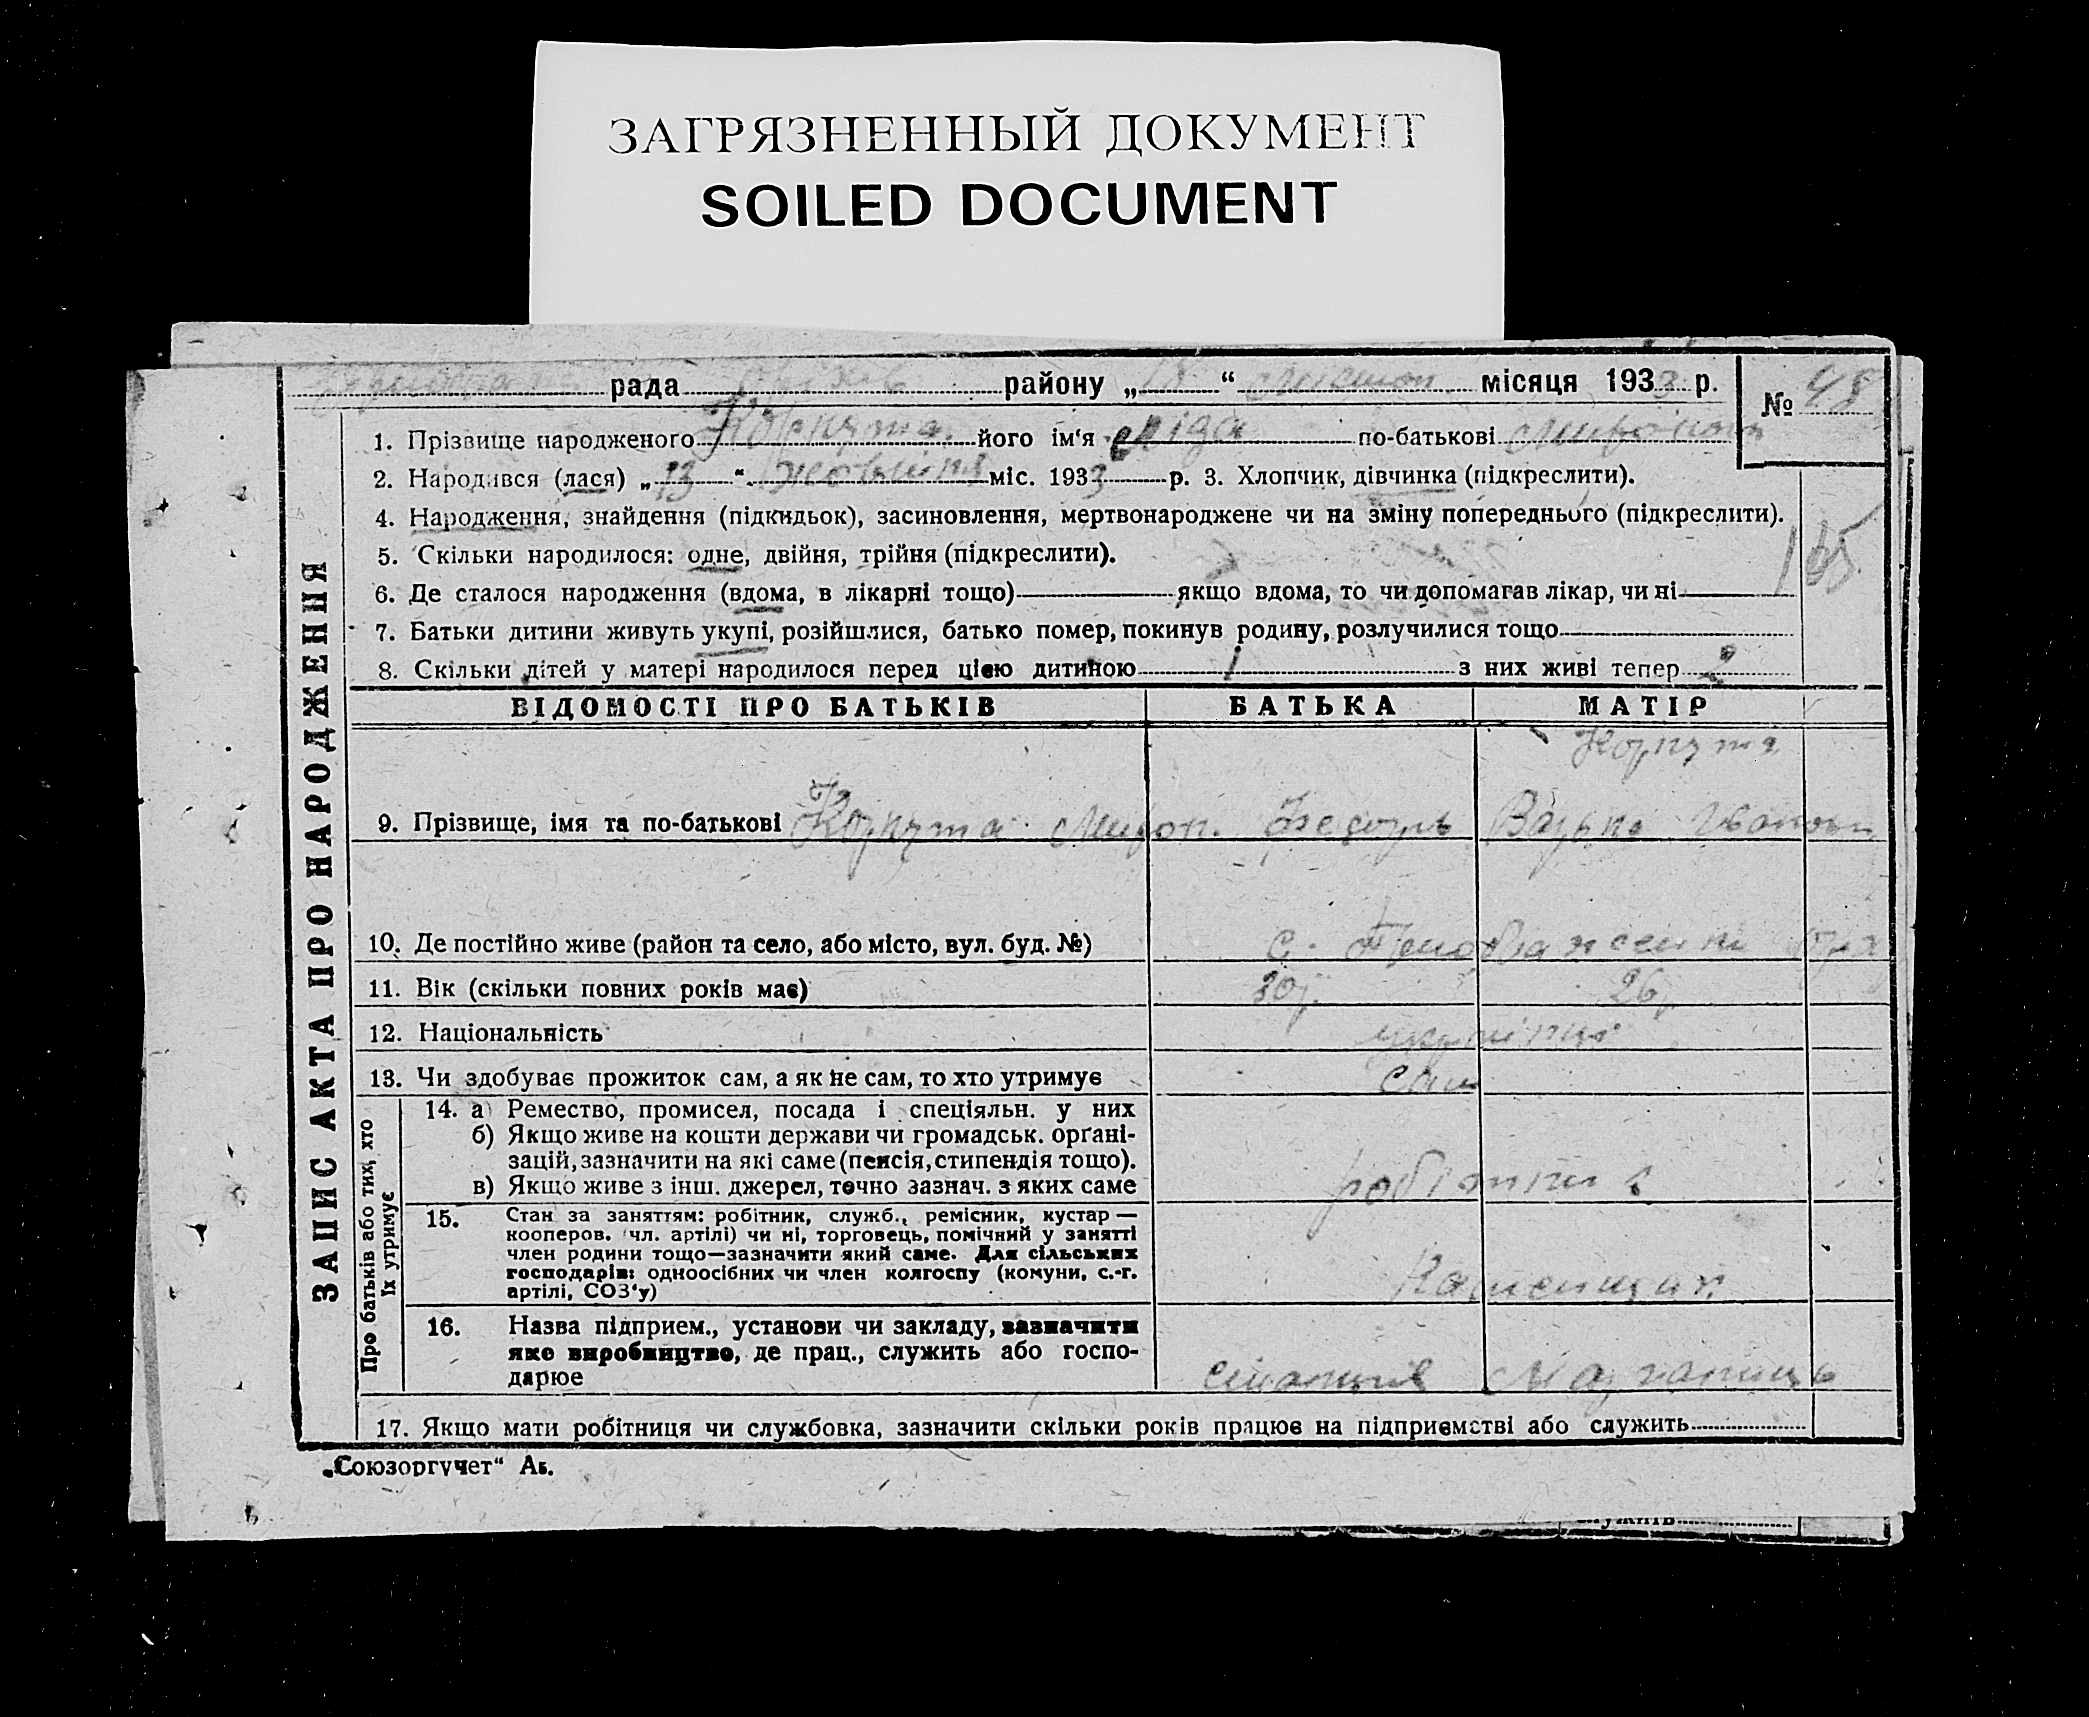 ЗАГРЯЗНЕННЫЙ ДОКУМЕНТ
SOILED DOCUMENT
рада району „ “ місяця 1933 р.
№ 48
1. Прізвище народженого Корнута його ім'я Ліда по-батькові
2. Народився (лася) „13“ жовтня міс. 1933 р. 3. Хлопчик, дівчинка (підкреслити).
4. Народження, знайдення (підкидьок), засиновлення, мертвонароджене чи на зміну попереднього (підкреслити).
5. Скільки народилося: одне, двійня, трійня (підкреслити).
6. Де сталося народження (вдома, в лікарні тощо) якщо вдома, то чи допомагав лікар, чи ні
7. Батьки дитини живуть укупі, розійшлися, батько помер, покинув родину, розлучилися тощо
8. Скільки дітей у матері народилося перед цією дитиною 1 з них живі тепер 2
ЗАПИС АКТА ПРО НАРОДЖЕННЯ
ВІДОМОСТІ ПРО БАТЬКІВ БАТЬКА МАТІР
Корнута
9. Прізвище, імя та по-батькові Корнута Мирон Федорь
10. Де постійно живе (район та село, або місто, вул. буд. №) с.
11. Вік (скільки повних років має) 30 р. 26 р.
12. Національність українці
13. Чи здобуває прожиток сам, а як не сам, то хто утримує сам
Про батьків або тих, хто їх утримує
14. а) Ремество, промисел, посада і спеціяльн. у них
б) Якщо живе на кошти держави чи громадськ. орґані-
зацій, зазначити на які саме (пенсія, стипендія тощо).
в) Якщо живе з інш. джерел, точно зазнач. з яких саме робітник
15. Стан за заняттям: робітник, служб., ремісник, кустар—
кооперов. чл. артілі) чи ні, торговець, помічний у занятті
член родини тощо—зазначити який саме. Для сільських
господарів: одноосібних чи член колгоспу (комуни, с.-г.
артілі, СОЗ'у) Каменщик
16. Назва підприєм., установи чи закладу, зазначити
яке виробництво, де прац., служить або госпо-
дарює станция Марганець
17. Якщо мати робітниця чи службовка, зазначити скільки років працює на підприємстві або служить
„Союзоргучет“
служить